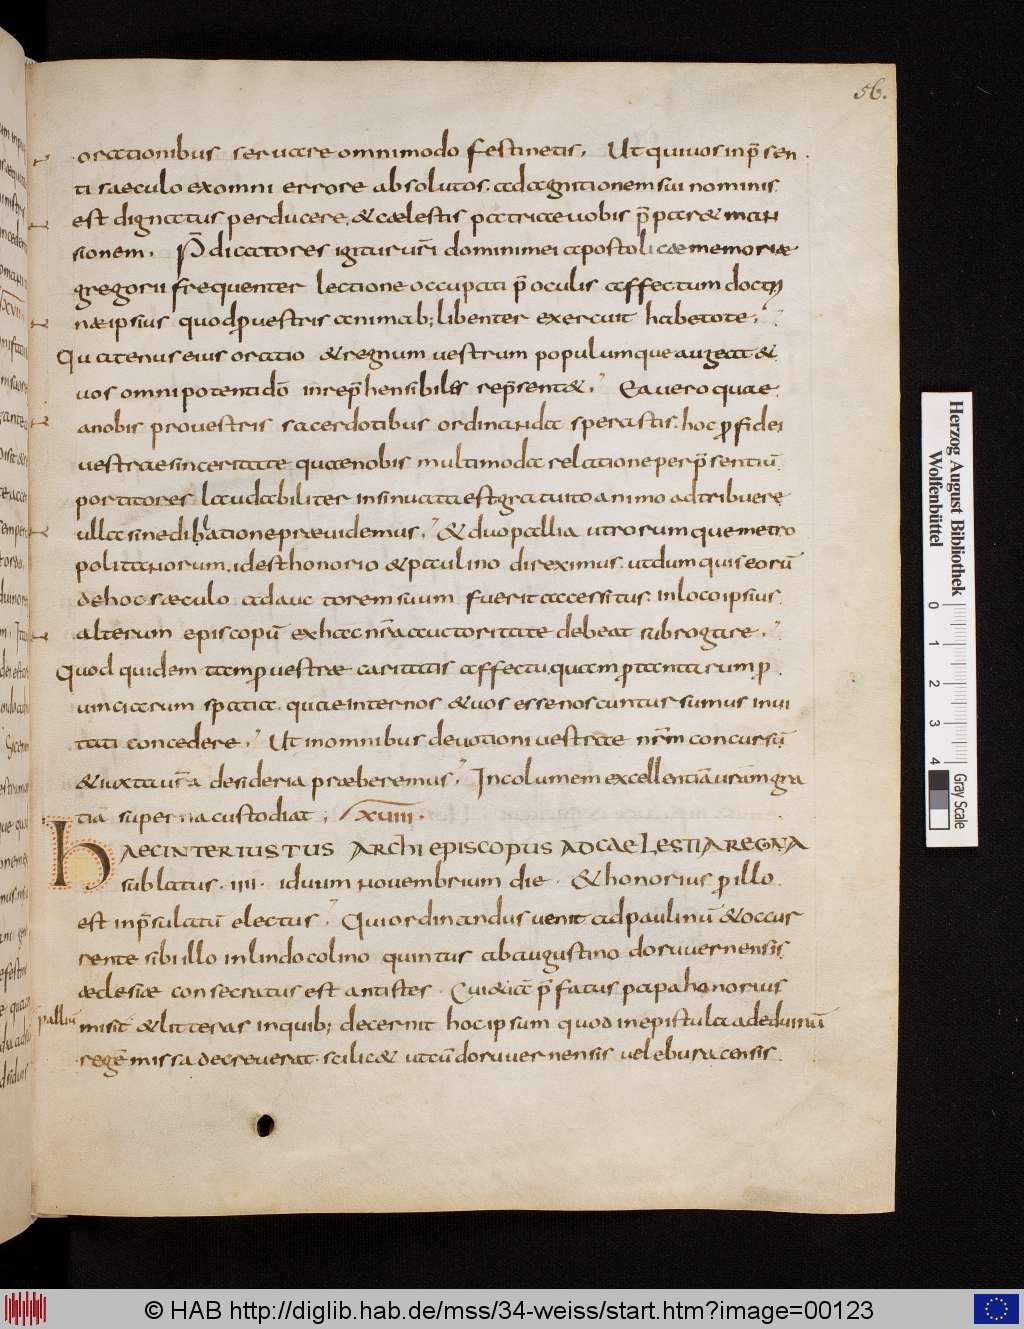 56.
orationibus seruare omnimodo festinetis. Ut qui uos in p̄sen
ti saeculo ex omni errore absolutos. ad agnitionem sui nominis
est dignatus perducere, & caelestis patriae uobis p̄par& man
sionem. P̄dicatores igitur ur̄i domini mei apostolicae memoriae
gregorii frequenter lectione occupati p̄ oculis affectum doctri
nae ipsius quod p̱ uestris animab; libenter exercuit habetote.
Quatenus eius oratio & regnum uestrum populumque augeat &
uos omnipotenti dō inrep̄hensibiles rep̄sent&. Ea uero quae
a nobis pro uestris sacerdotibus ordinanda sperastis. hoc p̱ fidei
uestrae sinceritate quae nobis multimoda relatione per p̄sentiū
portitores laudabiliter insinuata est gratuito animo adtribuere
ulla sine dilatione praeuidemus. & duo pallia utrorumque metro
politanorum. id est honorio & paulino direximus. ut dum quis eorū
de hoc saeculo ad auctorem suum fuerit accessitus. in loco ipsius
alterum episcopū ex hac nr̄a auctoritate debeat subrogare.
Quod quidem tam p̱ uestrae caritatis affectu, quam p̱ tantarum p̱
uinciarum spatia. quae inter nos & uos esse noscuntur sumus inui
tati concedere. Ut in omnibus deuotioni uestrae nr̄m concursū
& iuxta ur̄a desideria praeberemus. Incolumem excellentiā ur̄am gra
tiā superna custodiat; XVIIII.
HAEC INTER IUSTUS ARCHIEPISCOPUS AD CAELESTIA REGNA
sublatus. IIII. iduum nouembrium die. & honorius p̱ illo
est in p̄sulatū electus. Qui ordinandus uenit ad paulinū & occur
rente sibi illo in lindocolino quintus ab augustino doruuernensis
aeclesiae consecratus est antistes. Cui &iā p̄fatus papa honorius
pallium misit & litteras in quib; decernit hoc ipsum quod in epistula ad eduinū
regē missa decreuerat. scilic& ut cū doruuernensis uel eburacensis
Herzog August Bibliothek
Wolfenbüttel
0 1 2 3 4
Gray Scale
© HAB http://diglib.hab.de/mss/34-weiss/start.htm?image=00123